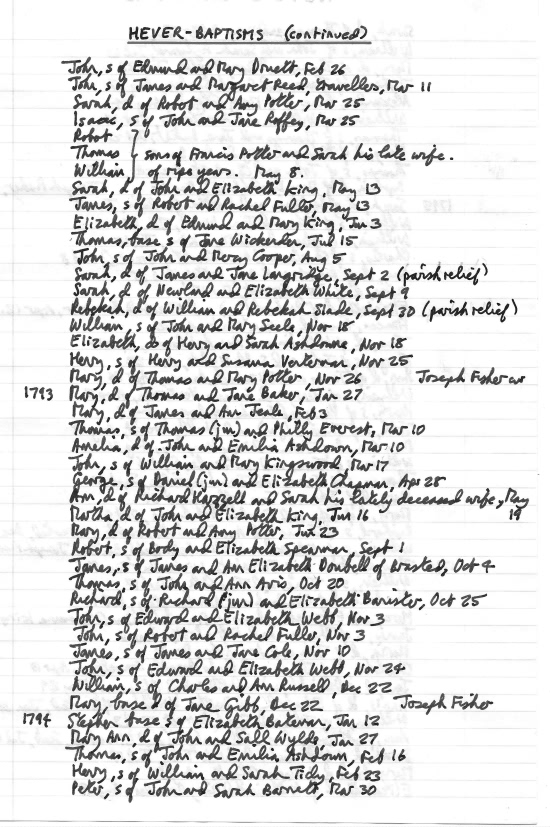 HEVER-BAPTISMS (continued)
John, s of Edmund and Mary Doust, Feb 26
John, s of James and Margaret Reed, travellers, Mar 11
Sarah, d of Robot and Amy Potter, Mar 25
Isaac, s of John and Jane Roffey, Mar 25
Robot
Thomas } sons of Francis Potter and Sarah his late wife.
William of ripe years. May 8.
Sarah, d of John and Elizabeth King, May 13
James, s of Robot and Rachel Fuller, May 13
Elizabeth, d of Edmund and Mary King, Jun 3
Thomas, base s of Jane Wickenden, Jul 15
John, s of John and Mercy Cooper, Aug 5
Sarah, d of James and Jane Langridge, Sept 2 (parish relief)
Sarah, d of Newland and Elizabeth White, Sept 9
Rebekah, d of William and Rebekah Slade, Sept 30 (parish relief)
William, s of John and Mary Seele, Nov 18
Elizabeth, d of Henry and Sarah Ashdowne, Nov 18
Henry, s of Henry and Susana Venterman, Nov 25
Mary, d of Thomas and Mary Potter, Nov 26 Joseph Fisher cur
1793 Mary, d of Thomas and Jane Baker, Jan 27
Mary, d of James and Ann Jeale, Feb 3
Thomas, s of Thomas (jun) and Philly Everest, Mar 10
Amelia, d of John and Emilia Ashdown, Mar 10
John, s of William and Mary Kingswood, Mar 17
George, s of Daniel (jun) and Elizabeth Chapman, Apr 28
Ann, d of Richard Hazzell and Sarah his lately deceased wife, May 19
Martha, d of John and Elizabeth King, Jun 16
Mary, d of Robert and Amy Potter, Jun 23
Robert, s of Body and Elizabeth Spearman, Sept 1
James, s of James and Ann Elizabeth Doubell of Brasted, Oct 4
Thomas, s of John and Ann Avis, Oct 20
Richard, s of Richard (jun) and Elizabeth Banister, Oct 25
John, s of Edward and Elizabeth Webb, Nov 3
John, s of Robot and Rachel Fuller, Nov 3
James, s of James and Jane Cole, Nov 10
John, s of Edward and Elizabeth Webb, Nov 24
William, s of Charles and Ann Russell, Dec 22
Mary, base d of Jane Gibb, Dec 22 Joseph Fisher
1794 Stephen base s of Elizabeth Bateman, Jan 12
Mary Ann, d of John and Sall Wylds, Jan 27
Thomas, s of John and Emilia Ashdown, Feb 16
Henry, s of William and Sarah Tidy, Feb 23
Peter, s of John and Sarah Barnett, Mar 30